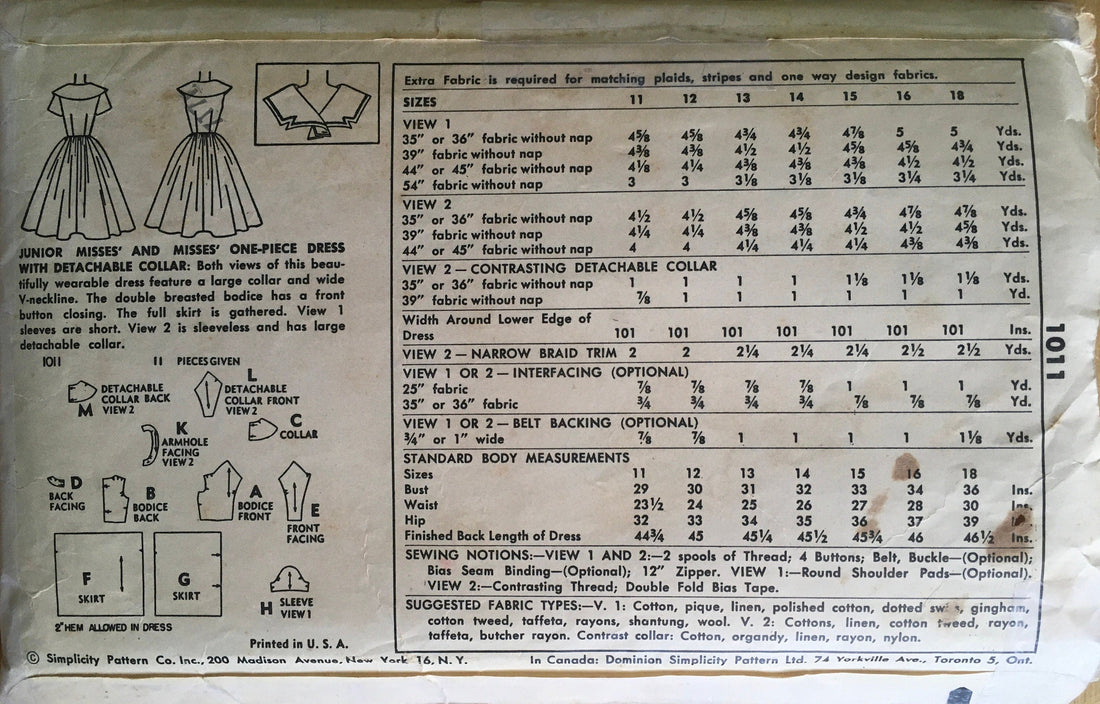 JUNIOR MISSES' AND MISSES' ONE-PIECE DRESS
WITH DETACHABLE COLLAR: Both views of this beau-
tifully wearable dress feature a large collar and wide
V-neckline. The double breasted bodice has a front
button closing. The full skirt is gathered. View 1
sleeves are short. View 2 is sleeveless and has large
detachable collar.
1011 11 PIECES GIVEN
M DETACHABLE COLLAR BACK VIEW 2
L DETACHABLE COLLAR FRONT VIEW 2
K ARMHOLE FACING VIEW 2
C COLLAR
D BACK FACING
B BODICE BACK
A BODICE FRONT
E FRONT FACING
F SKIRT
G SKIRT
H SLEEVE VIEW 1
2" HEM ALLOWED IN DRESS
Printed in U. S. A.
Extra Fabric is required for matching plaids, stripes and one way design fabrics.
SIZES 11 12 13 14 15 16 18
VIEW 1
35" or 36" fabric without nap 4⅝ 4⅝ 4¾ 4¾ 4⅞ 5 5 Yds.
39" fabric without nap 4⅜ 4⅜ 4½ 4½ 4⅝ 4⅝ 4¾ Yds.
44" or 45" fabric without nap 4⅛ 4¼ 4⅜ 4⅜ 4⅜ 4½ 4½ Yds.
54" fabric without nap 3 3 3⅛ 3⅛ 3⅛ 3¼ 3¼ Yds.
VIEW 2
35" or 36" fabric without nap 4½ 4½ 4⅝ 4⅝ 4¾ 4⅞ 4⅞ Yds.
39" fabric without nap 4¼ 4¼ 4⅜ 4⅜ 4½ 4½ 4⅝ Yds.
44" or 45" fabric without nap 4 4 4¼ 4¼ 4¼ 4⅜ 4⅜ Yds.
VIEW 2 — CONTRASTING DETACHABLE COLLAR
35" or 36" fabric without nap 1 1 1 1 1⅛ 1⅛ 1⅛ Yds.
39" fabric without nap ⅞ 1 1 1 1 1 1 Yd.
Width Around Lower Edge of
Dress 101 101 101 101 101 101 101 Ins.
VIEW 2 — NARROW BRAID TRIM 2 2 2¼ 2¼ 2¼ 2½ 2½ Yds.
VIEW 1 OR 2 — INTERFACING (OPTIONAL)
25" fabric ⅞ ⅞ ⅞ ⅞ 1 1 1 Yd.
35" or 36" fabric ¾ ¾ ¾ ¾ ⅞ ⅞ ⅞ Yd.
VIEW 1 OR 2 — BELT BACKING (OPTIONAL)
¾" or 1" wide ⅞ ⅞ 1 1 1 1 1⅛ Yds.
STANDARD BODY MEASUREMENTS
Sizes 11 12 13 14 15 16 18
Bust 29 30 31 32 33 34 36 Ins.
Waist 23½ 24 25 26 27 28 30 Ins.
Hip 32 33 34 35 36 37 39
Finished Back Length of Dress 44¾ 45 45¼ 45½ 45¾ 46 46½ Ins.
SEWING NOTIONS:—VIEW 1 AND 2:—2 spools of Thread; 4 Buttons; Belt, Buckle—(Optional);
Bias Seam Binding—(Optional); 12" Zipper. VIEW 1:—Round Shoulder Pads—(Optional).
VIEW 2:—Contrasting Thread; Double Fold Bias Tape.
SUGGESTED FABRIC TYPES:—V. 1: Cotton, pique, linen, polished cotton, dotted gingham,
cotton tweed, taffeta, rayons, shantung, wool. V. 2: Cottons, linen, cotton tweed, rayon,
taffeta, butcher rayon. Contrast collar: Cotton, organdy, linen, rayon, nylon.
1011
© Simplicity Pattern Co. Inc., 200 Madison Avenue, New York 16, N. Y. In Canada: Dominion Simplicity Pattern Ltd. 74 Yorkville Ave., Toronto 5, Ont.